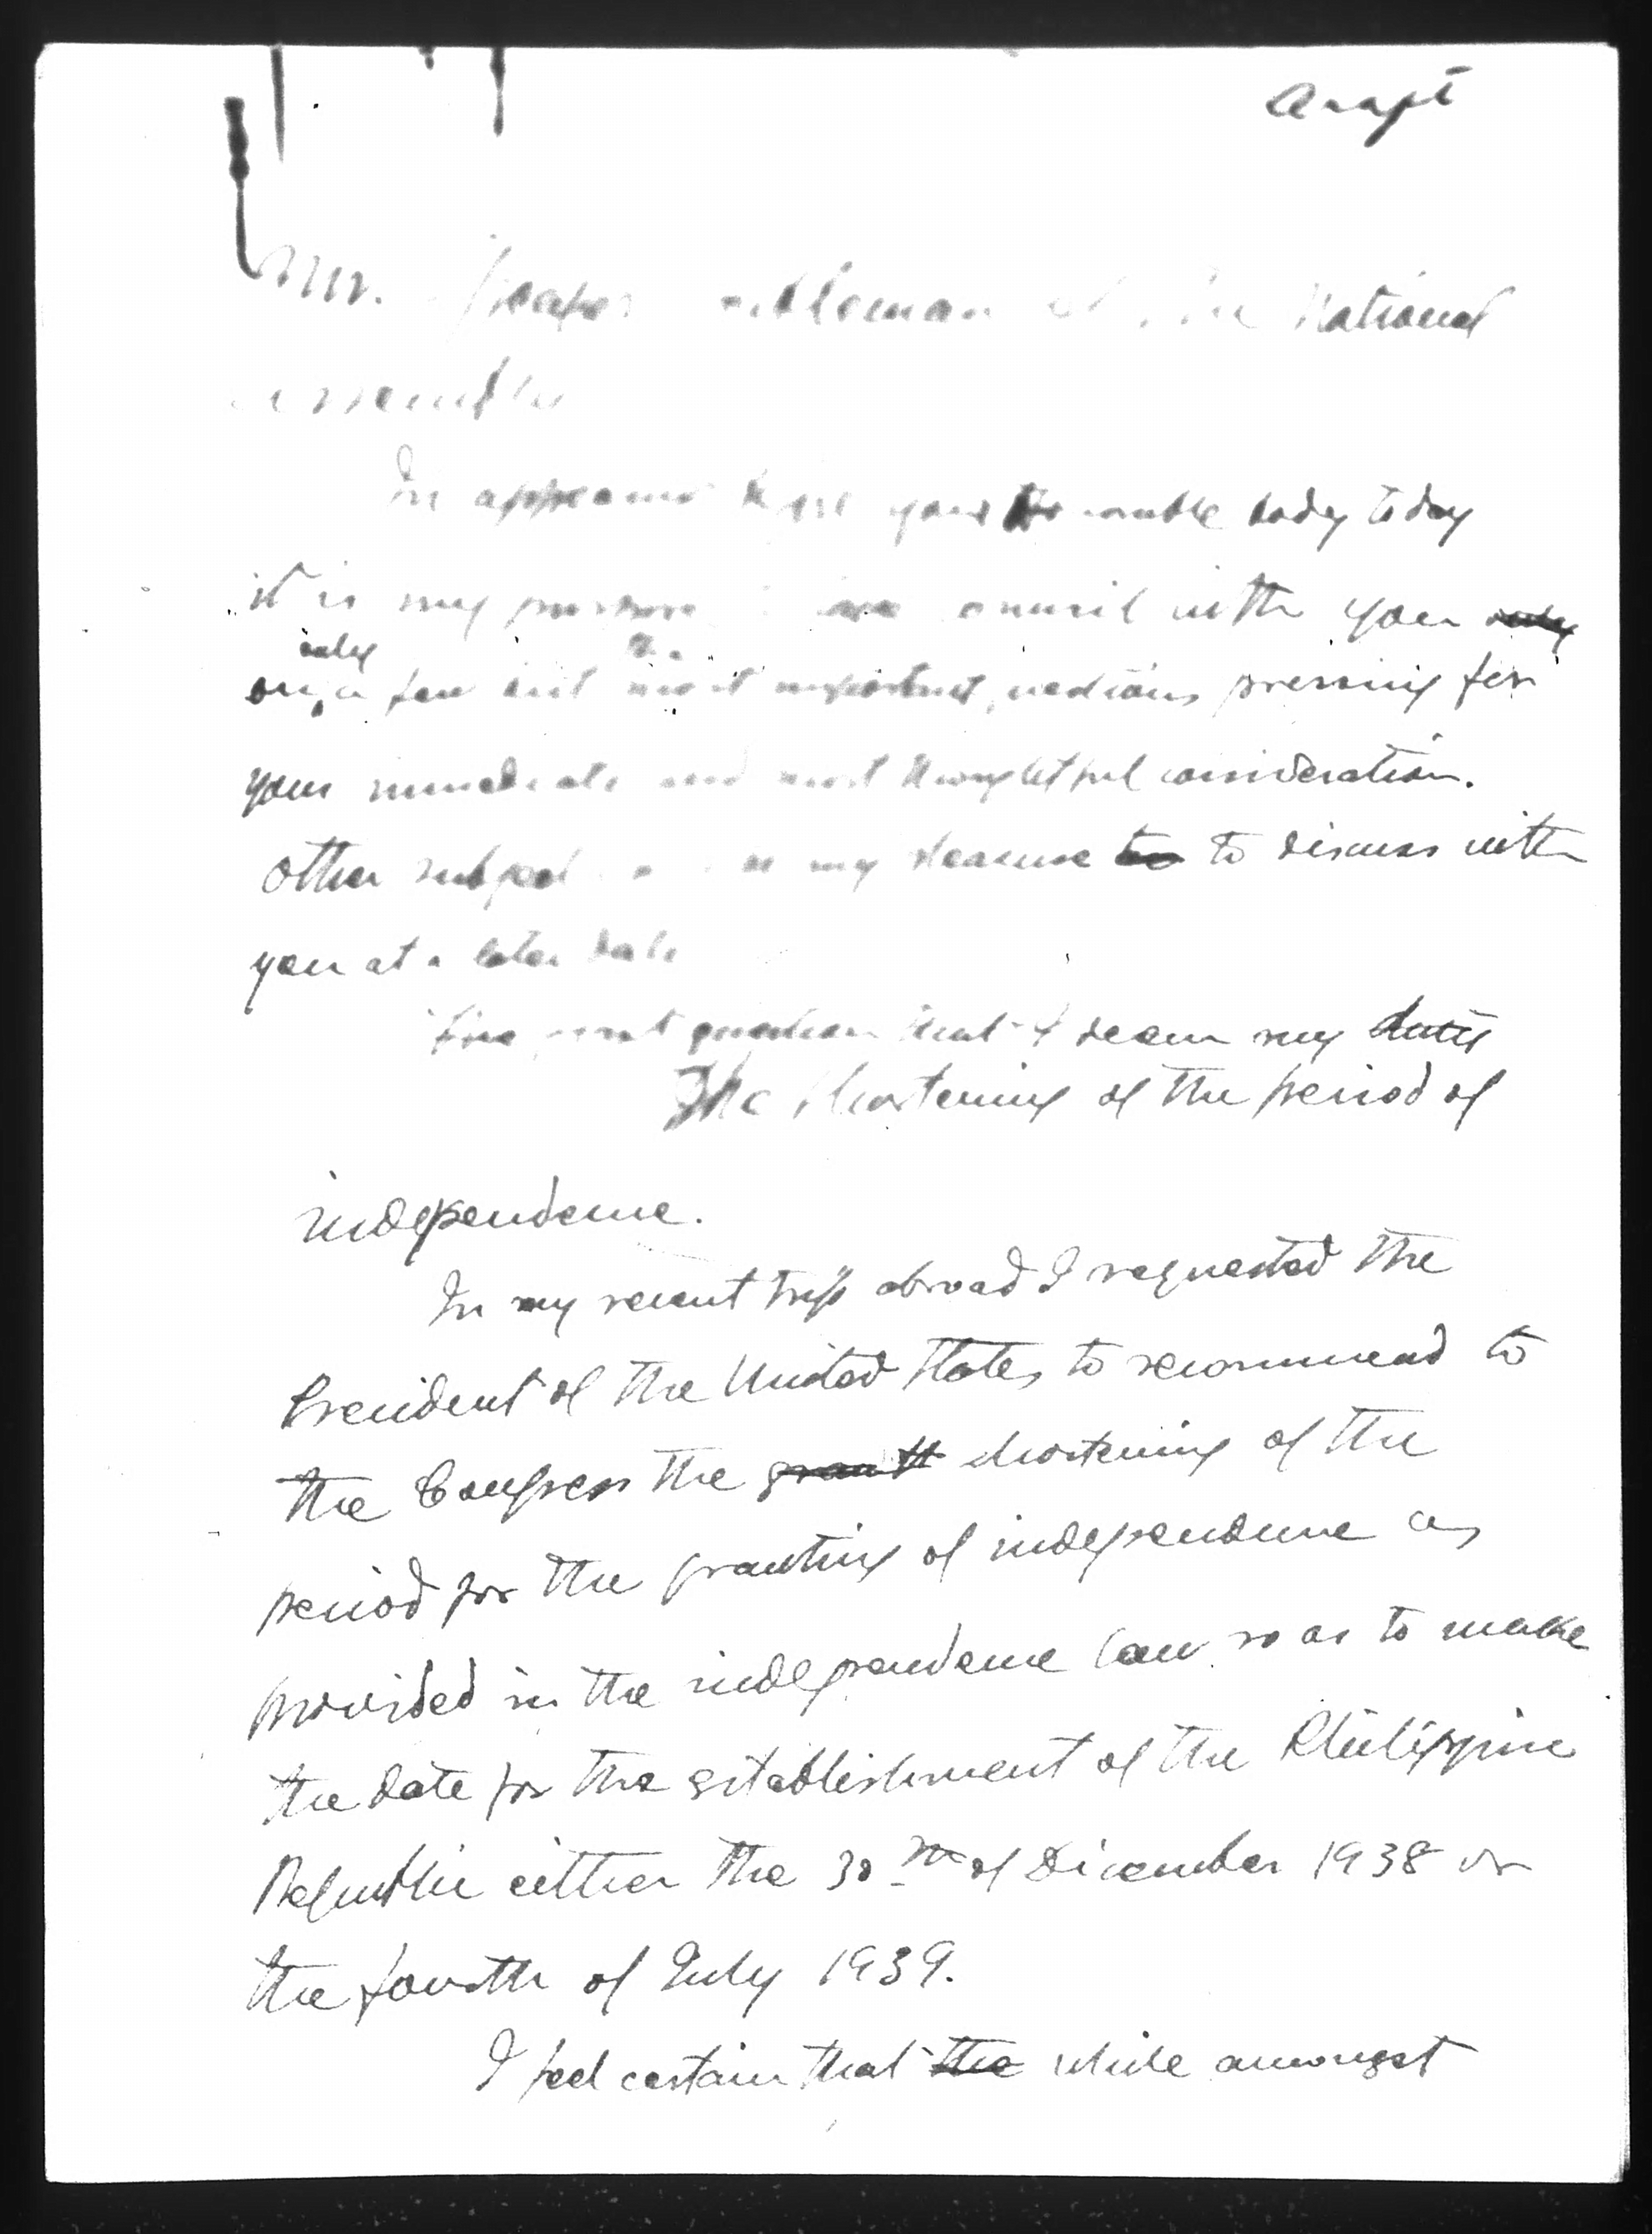 Draft
Mr. Speaker Gentlemen of the National
Assembly
In appearing before your Honorable body today
it is my purpose council with you only
only the
on a few but most important questions pressing for
your immediate and most thoughtful consideration.
Other subject my pleasure to to discuss with
you at a later date
The first question that I deem my duty
The shortening of the period of
independence.
In my recent trip abroad I requested the
President of the United States to recommend to
the Congress the grant shortening of the
period for the granting of independence as
provided in the independence law so as to make
the date for the establishment of the Philippine
Republic either the 30th of December 1938 or
the fourth of July 1939.
I feel certain that the while amongst